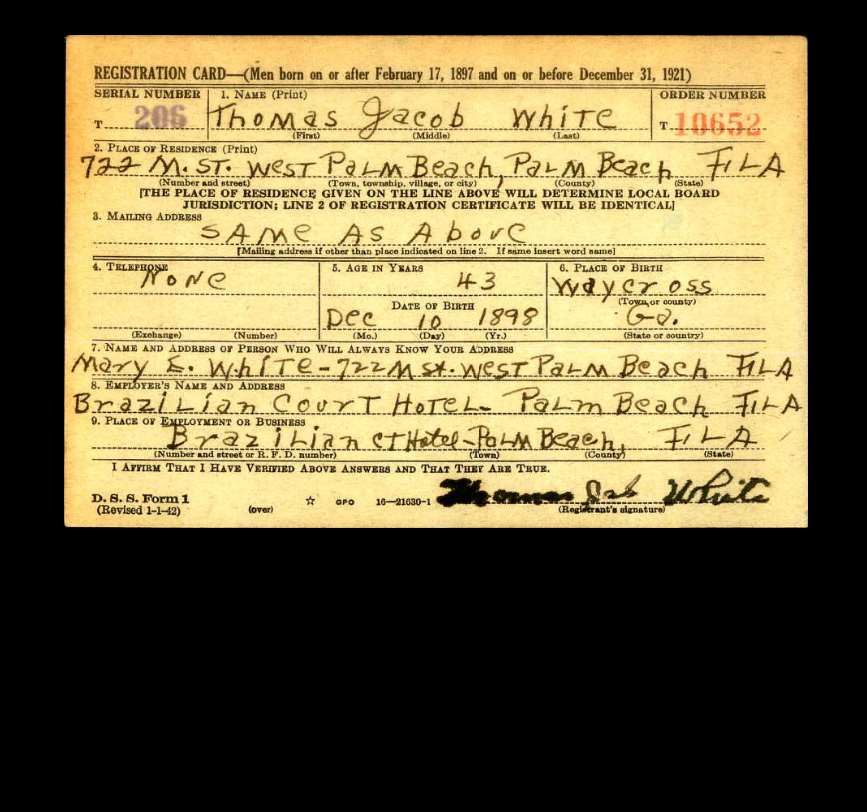 REGISTRATION CARD—(Men born on or after February 17, 1897 and on or before December 31, 1921)
SERIAL NUMBER 1. NAME (Print) ORDER NUMBER
T 206 Thomas Jacob White T 10652
(First) (Middle) (Last)
2. PLACE OF RESIDENCE (Print)
722 M. ST. West Palm Beach, Palm Beach FlLA
(Number and street) (Town, township, village, or city) (County) (State)
[THE PLACE OF RESIDENCE GIVEN ON THE LINE ABOVE WILL DETERMINE LOCAL BOARD
JURISDICTION; LINE 2 OF REGISTRATION CERTIFICATE WILL BE IDENTICAL]
3. MAILING ADDRESS
SAME AS Above
[Mailing address if other than place indicated on line 2. If same insert word same]
4. TELEPHONE 5. AGE IN YEARS 6. PLACE OF BIRTH
NoNe 43 Waycross
DATE OF BIRTH (Town or county)
Dec 10 1898 Ga.
(Exchange) (Number) (Mo.) (Day) (Yr.) (State or country)
7. NAME AND ADDRESS OF PERSON WHO WILL ALWAYS KNOW YOUR ADDRESS
Mary E. White - 722 M st. West Palm Beach FlLA
8. EMPLOYER'S NAME AND ADDRESS
Brazilian Court Hotel - Palm Beach FlLA
9. PLACE OF EMPLOYMENT OR BUSINESS
Brazilian CT Hotel - Palm Beach, FlLA
(Number and street or R. F. D. number) (Town) (County) (State)
I AFFIRM THAT I HAVE VERIFIED ABOVE ANSWERS AND THAT THEY ARE TRUE.
D. S. S. Form 1 Thomas White
(Revised 1-1-42) (over) ☆ GPO 16—21630-1 (Registrant's signature)